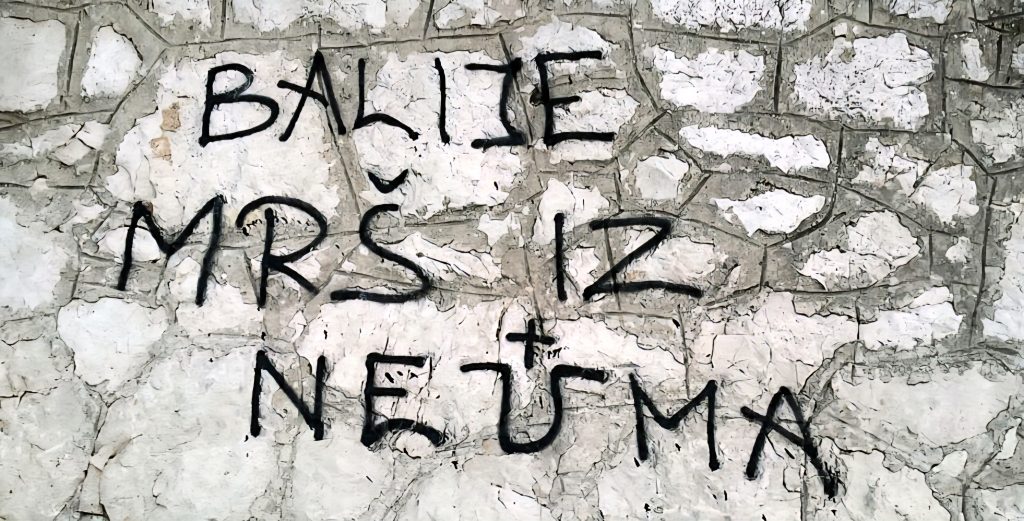 BALIJE
MRŠ IZ
NEUMA